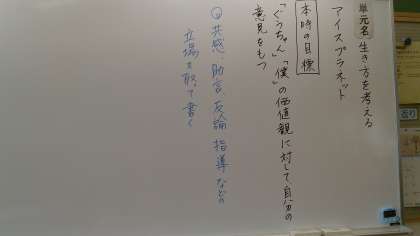 単元名 生き方を考える
アイスプラネット
本時の目標
「ぐうちゃん」「僕」の価値観に対して、自分の
意見をもつ
共感、助言、反論、指導などの
立場を取って書く